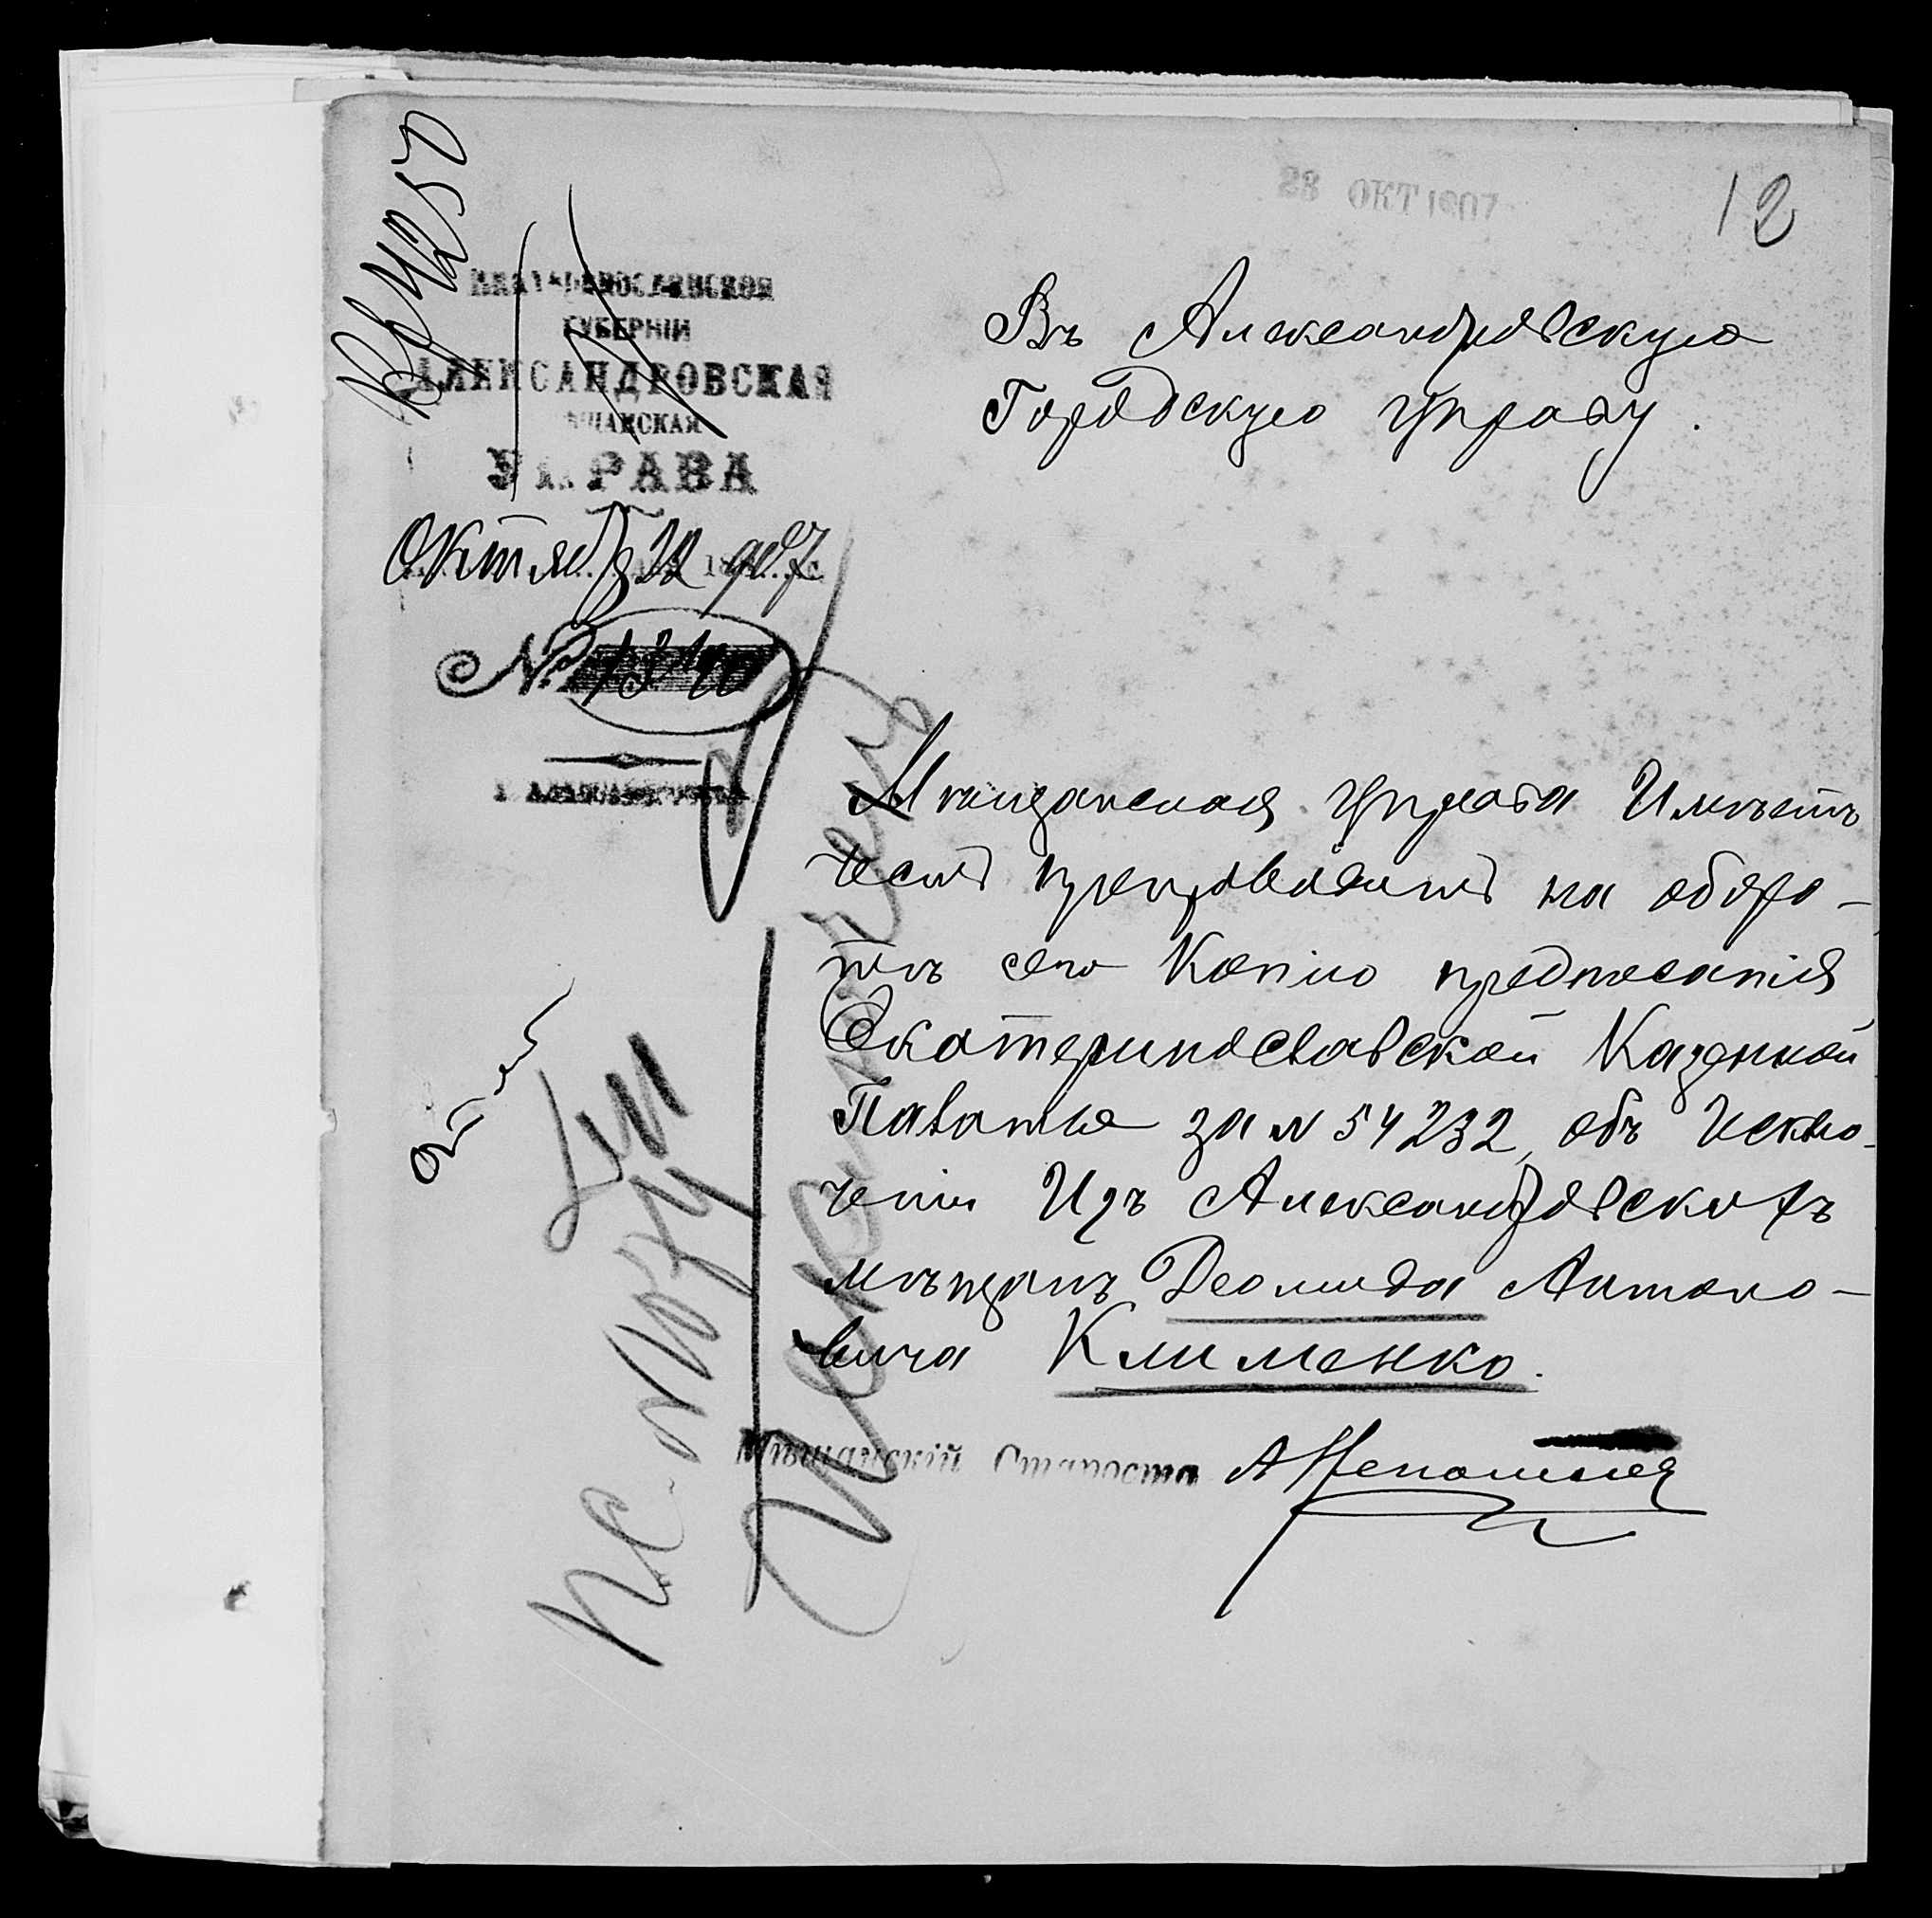 28 ОКТ 1907
12
Вх 4250
ЕКАТЕРИНОСЛАВСКОЙ
ГУБЕРНІИ
АЛЕКСАНДРОВСКАЯ
МѢЩАНСКАЯ
УПРАВА
Октября 22 1907 г.
№ 1340
Г. АЛЕКСАНДРОВСКЪ
Въ Александровскую
Городскую Управу.
Мѣщанская Управа Имѣетъ
честь препроводить на оборо-
тѣ сего Копію предписанія
Екатеринославской Казенной
Палаты за № 54232, объ Исклю-
ченіи Изъ Александровскихъ
мѣщанъ Деомида Антоно-
вича Клименко.
Мѣщанскій Староста